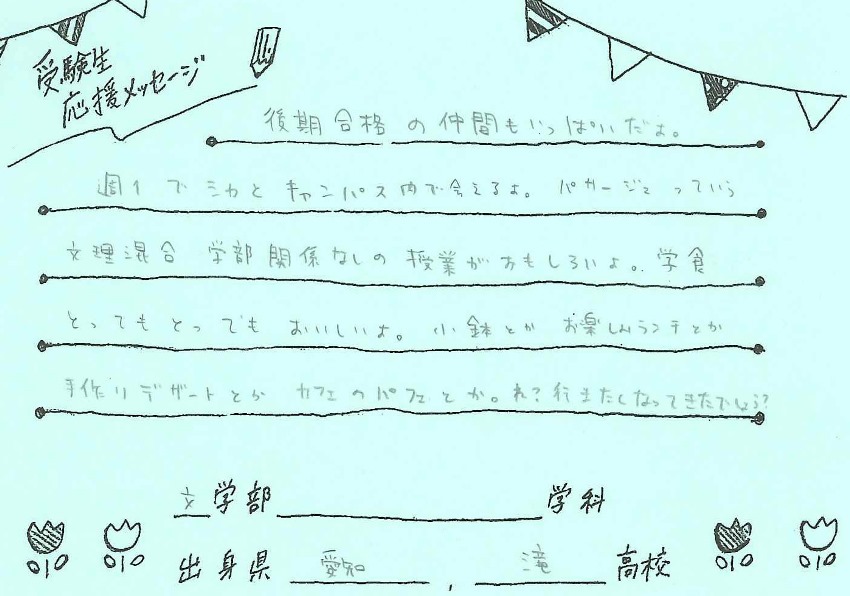 受験生
応援メッセージ
後期合格の仲間もいっぱいだよ。
週1でシカとキャンパス内で会えるよ。パサージュっていう
文理混合 学部関係なしの授業がおもしろいよ。学食
とってもとってもおいしいよ。小鉢とか お楽しみランチとか
手作りデザートとか カフェのパフェとか。ね?行きたくなってきたでしょう?
文学部 学科
出身県 愛知 , 滝 高校